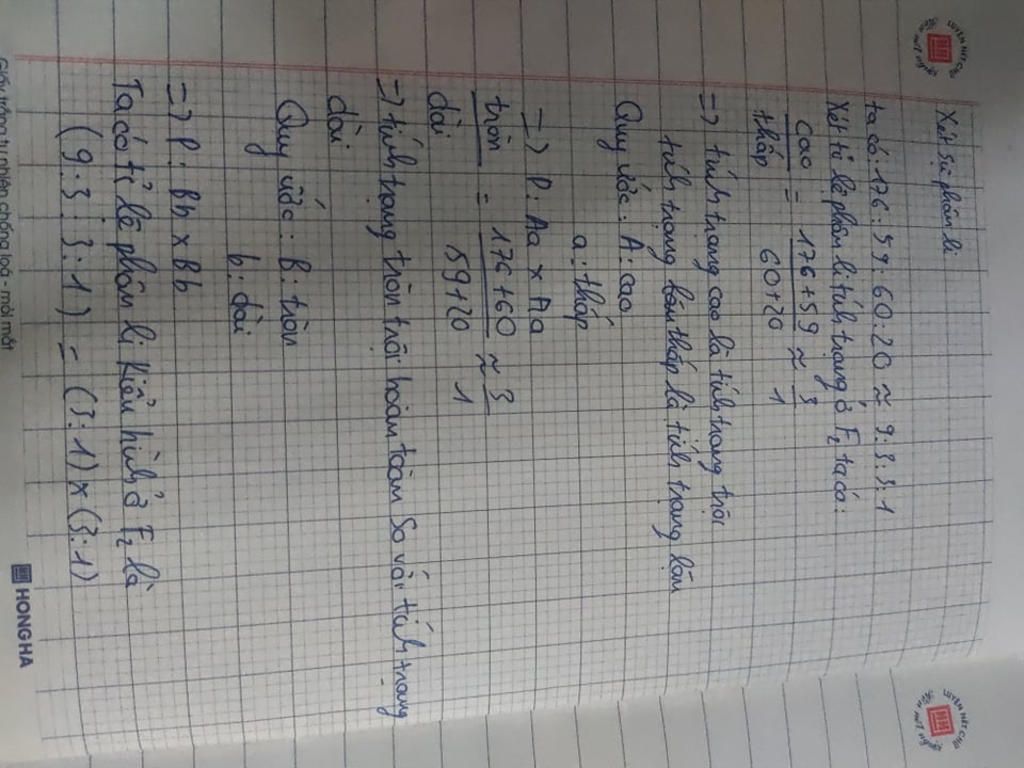 Xét sự phân li
ta có: 176:59:60:20 ≈ 9:3:3:1
Xét tỉ lệ phân li tính trạng ở F₂ ta có:
cao/thấp = 176+59/60+20 ≈ 3/1
=) tính trạng cao là tính trạng trội
tính trạng lặn thấp là tính trạng lặn
Quy ước: A: cao
a: thấp
=) P: Aa x Aa
tròn/dài = 176+60/59+20 ≈ 3/1
=) tính trạng tròn trội hoàn toàn so với tính trạng
dài
Quy ước: B: tròn
b: dài
=) P: Bb x Bb
Ta có tỉ lệ phân li kiểu hình ở F₂ là
(9:3:3:1) = (3:1)x(3:1)
HONG HA
LUYỆN NÉT CHỮ
LUYỆN NÉT CHỮ
Giấy trắng tự nhiên chống loá - mỏi mắt